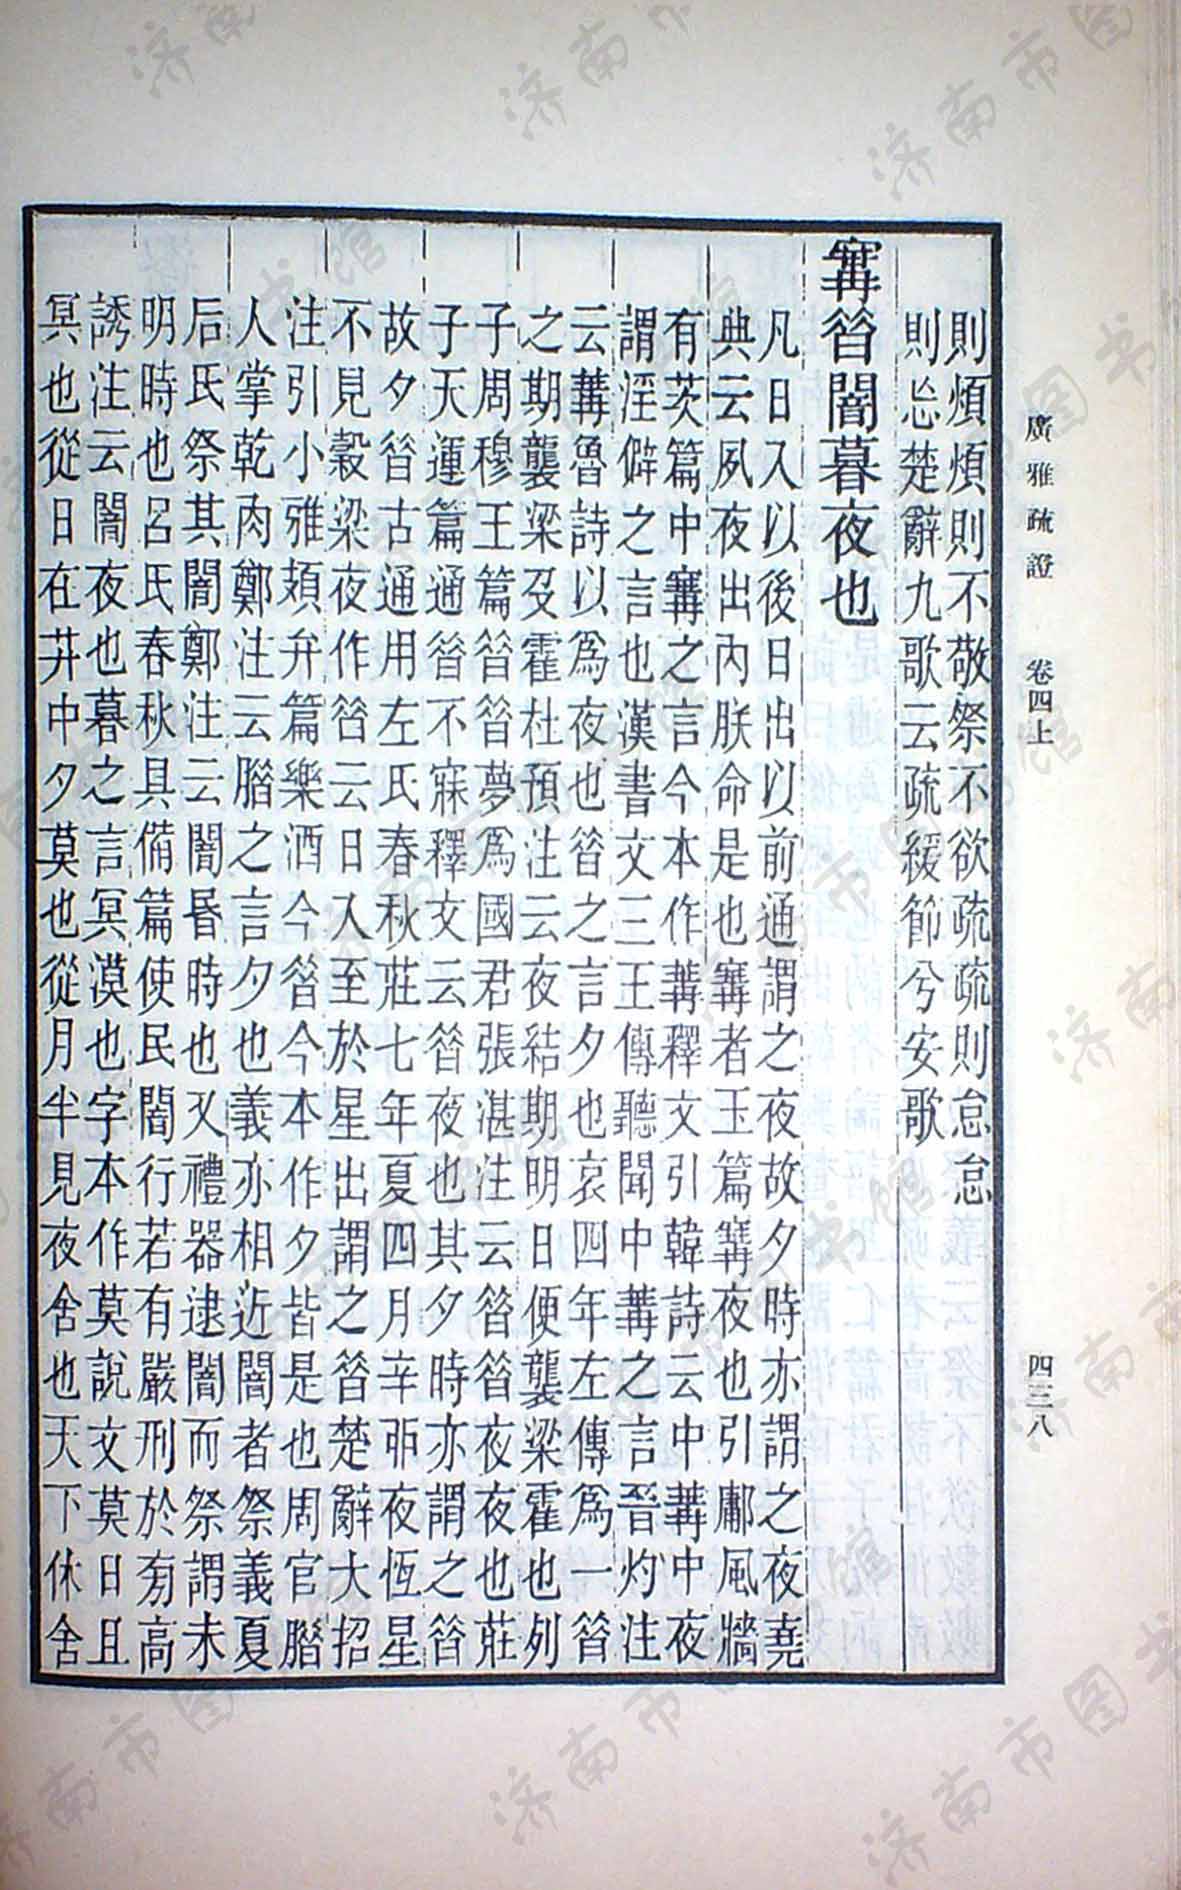 廣雅疏證　卷四上　四三八
則煩煩則不敬祭不欲疏疏則怠怠
則忘楚辭九歌云疏緩節兮安歌
㝤㫺闇暮夜也
凡日入以後日出以前通謂之夜故夕時亦謂之夜堯
典云夙夜出內朕命是也㝤者玉篇㝤夜也引鄘風牆
有茨篇中㝤之言今本作冓釋文引韓詩云中冓中夜
謂淫僻之言也漢書文三王傳聽聞中冓之言晉灼注
云冓魯詩以爲夜也㫺之言夕也哀四年左傳爲一㫺
之期襲梁及霍杜預注云夜結期明日便襲梁霍也列
子周穆王篇㫺㫺夢爲國君張湛注云㫺㫺夜夜也莊
子天運篇通㫺不寐釋文云㫺夜也其夕時亦謂之㫺
故夕㫺古通用左氏春秋莊七年夏四月辛卯夜恆星
不見穀梁夜作㫺云日入至於星出謂之㫺楚辭大招
注引小雅頍弁篇樂酒今㫺今本作夕皆是也周官腊
人掌乾肉鄭注云腊之言夕也義亦相近闇者祭義夏
后氏祭其闇鄭注云闇昬時也又禮器逮闇而祭謂未
明時也呂氏春秋具備篇使民闇行若有嚴刑於旁高
誘注云闇夜也暮之言冥漠也字本作莫說文莫日且
冥也從日在茻中夕莫也從月半見夜舍也天下休舍
济南市图书馆